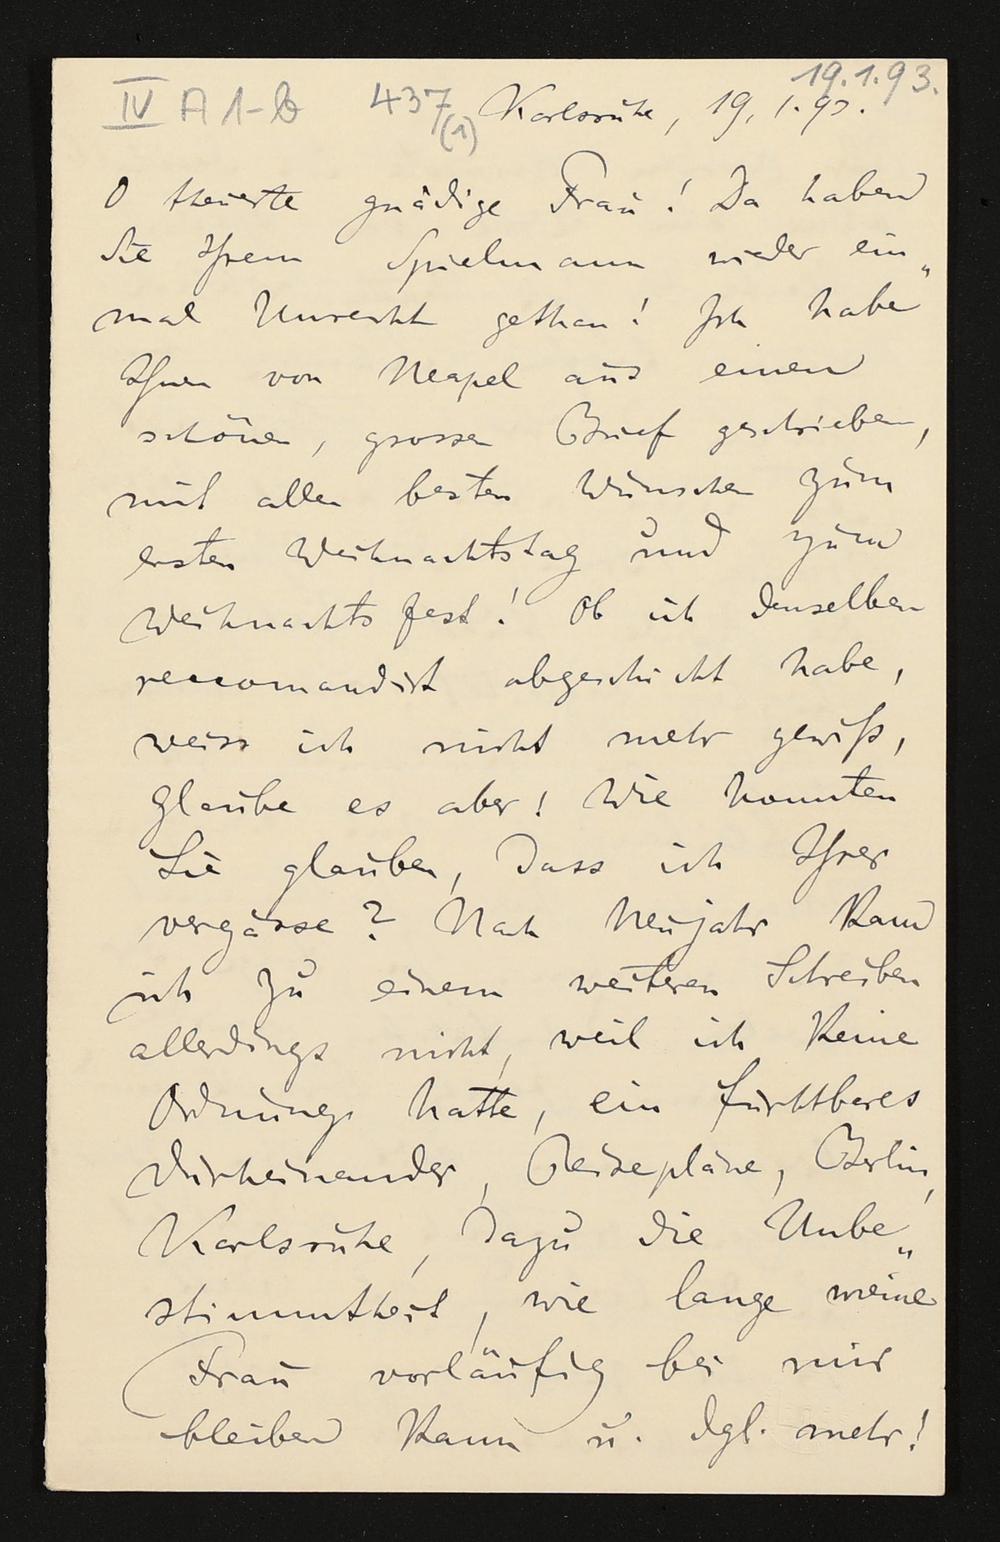 19.1.93.
IV A 1-b 437 (1) Karlsruhe, 19. 1. 93.
O theuerste gnädige Frau! Da haben
Sie Ihrem Spielmann wieder ein„
mal Unrecht gethan! Ich habe
Ihnen von Neapel aus einen
schönen, grossen Brief geschrieben,
mit allen besten Wünschen zum
ersten Weihnachtstag und zum
Weihnachtsfest! Ob ich denselben
reccomandirt abgeschickt habe,
weiss ich nicht mehr gewiß,
glaube es aber! Wie konnten
Sie glauben, dass ich Ihrer
vergässe? Nach Neujahr kam
ich zu einem weiteren Schreiben
allerdings nicht, weil ich keine
Ordnung hatte, ein furchtbares
Durcheinander, Reisepläne, Berlin,
Karlsruhe, dazu die Unbe„
stimmtheit, wie lange meine
Frau vorläufig bei mir
bleiben kann u. dgl. mehr!